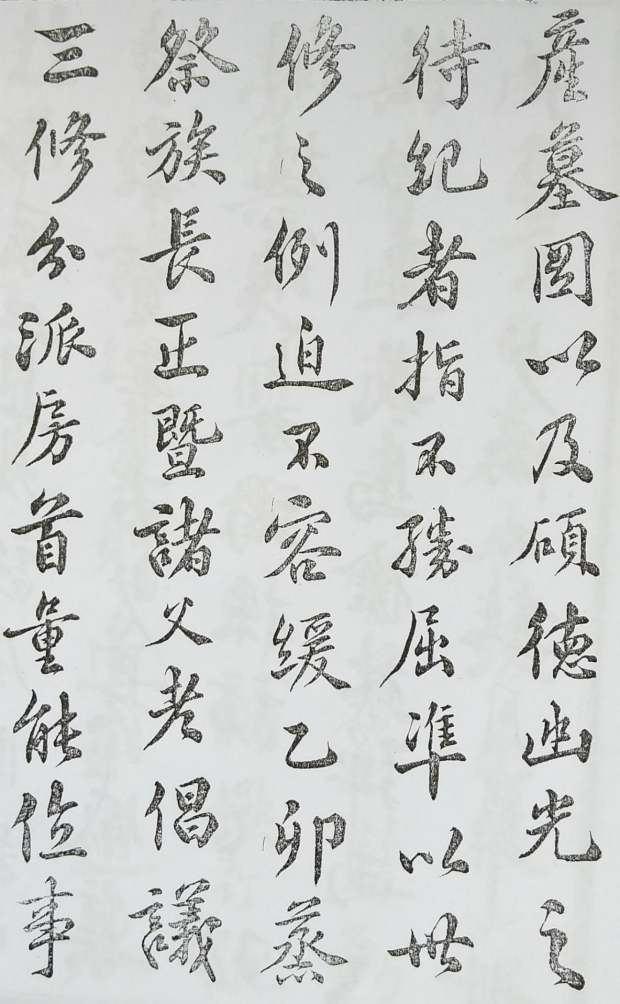 產墓図以及碩德幽光之
待紀者指不勝屈準以世
修之例迫不容緩乙卯蒸
祭族長正暨諸父老倡議
三修分派房首量能位事